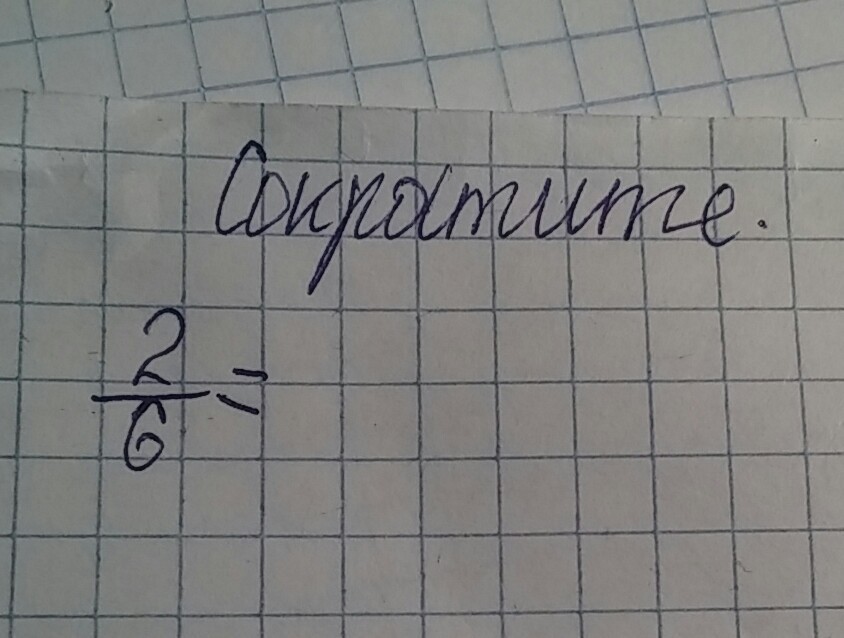 Сократите.
2/6 =